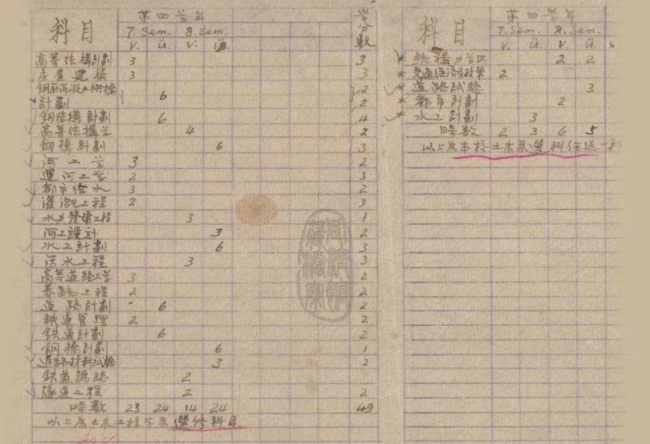 科目 第四学年 学分数
7. Sem. 8. Sem.
V. Ü. V. Ü.
高等结構計劃 3 3
房屋建築 3 3
鋼筋混凝土拱橋 2
計劃 6 2
鋼结構計劃 6 4
高等结構学 4 2
鋼橋計劃 6 3
河工学 3 2
運河工学 2 3
都市给水 3 2
灌溉工程 2 3
水力發電工程 3 1
河工設計 3 2
水工計劃 6 3
洪水工程 3 3
高等道路工学 3 2
養路工程 2 2
道路計劃 6 2
鉄道管理 2 2
鉄道計劃 6 2
鋼橋計劃 6 1
道路材料試驗 3 2
鉄道號誌 2
隧道工程 2 2
時数 23 24 14 24 49
以上為土木工程学系選修科目
科目 第四学年
7. Sem. 8. Sem.
V. Ü. V. Ü.
* 拱橋 2 2
* 2
* 道路試驗 3
* 都市計劃 2
* 水工計劃 3
時数 2 3 6 5
以上為本校土木系選科任选一